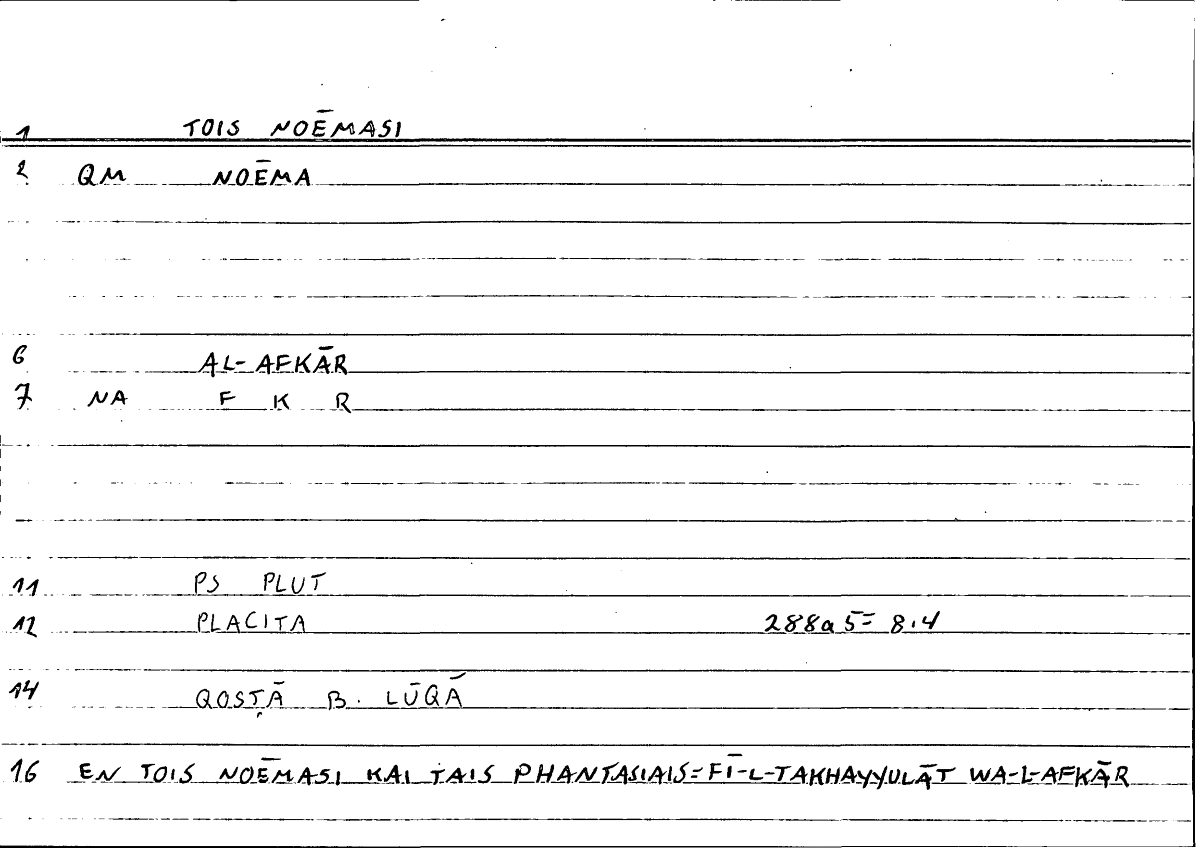 1 TOIS NOĒMASI
2 QM NOĒMA
6 AL-AFKĀR
7 NA F K R
11 PS PLUT
12 PLACITA 288a5= 8.4
14 QOSṬĀ B. LŪQĀ
16 EN TOIS NOĒMASI KAI TAIS PHANTASIAIS=FĪ-L-TAKHAYYULĀT WA-L-AFKĀR